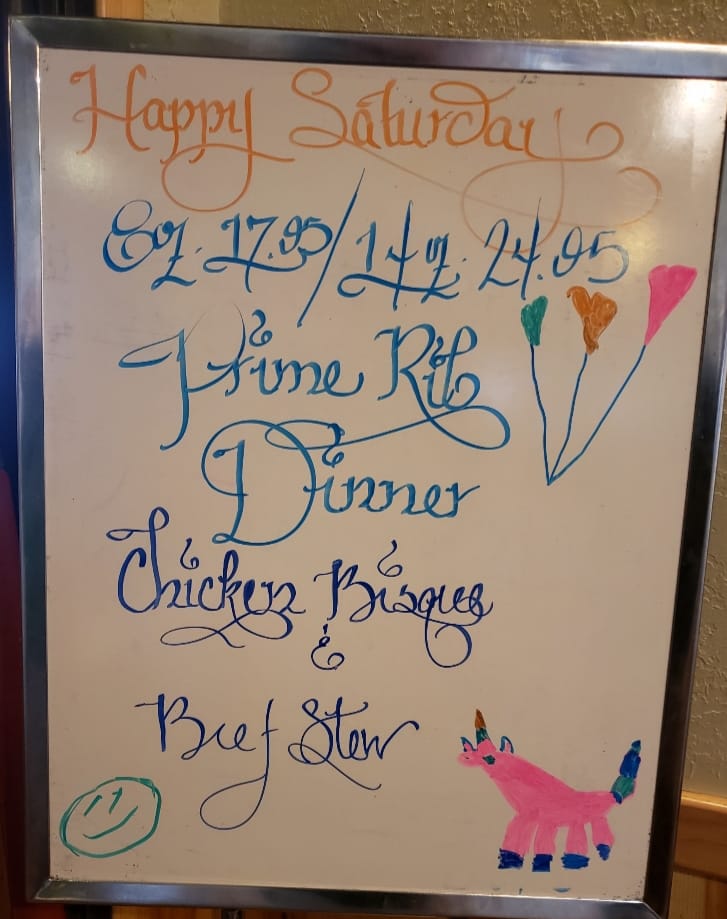 Happy Saturday
8oz. 17.95/14oz. 24.95
Prime Rib
Dinner
Chicken Bisque
&
Beef Stew